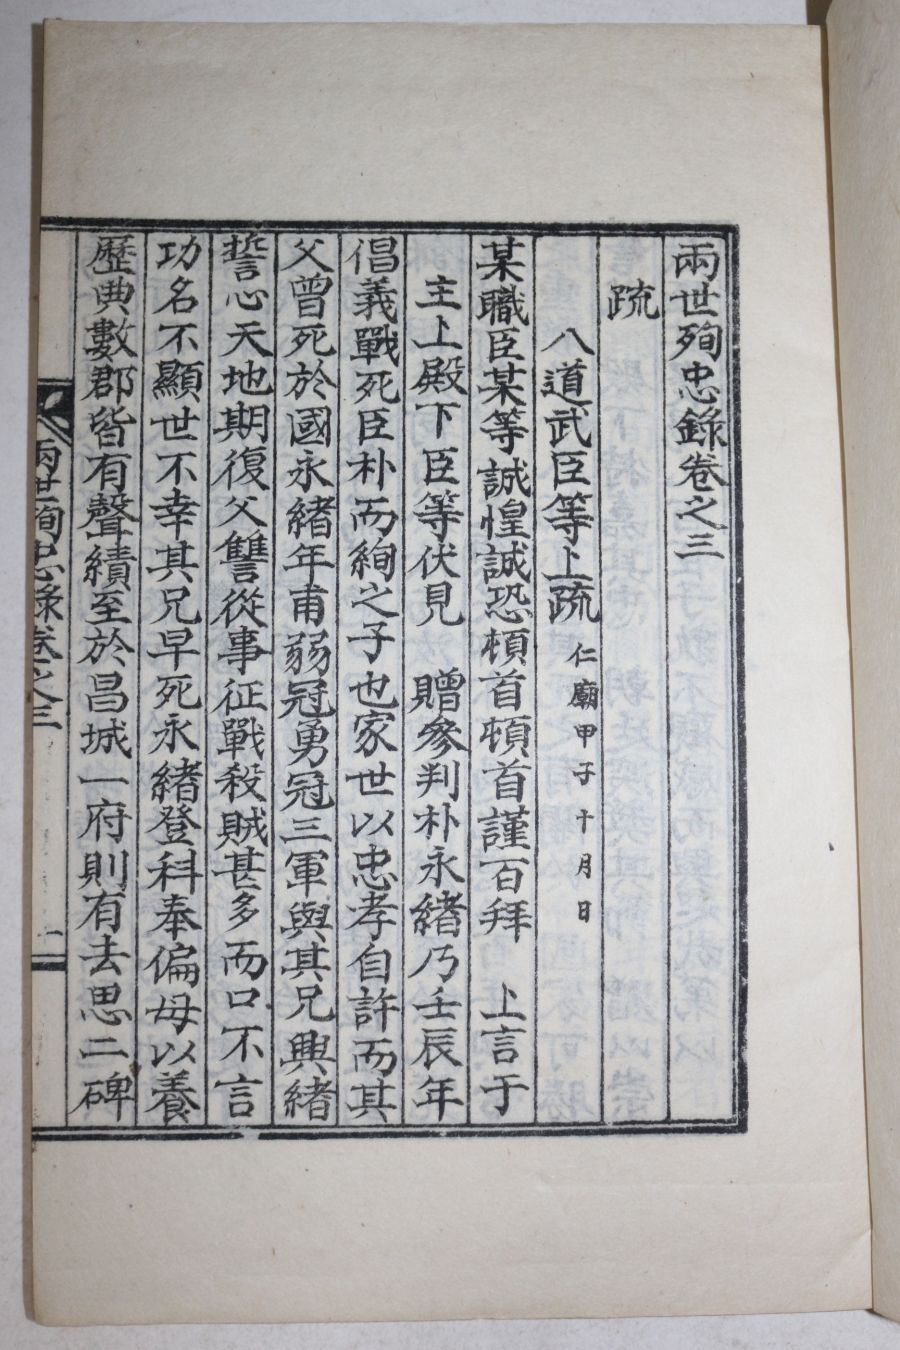 兩世殉忠錄卷之三
疏
八道武臣等上疏 仁廟甲子十月日
某職臣某等誠惶誠恐頓首頓首謹百拜 上言于
主上殿下臣等伏見 贈參判朴永緖乃壬辰年
倡義戰死臣朴而絢之子也家世以忠孝自許而其
父曾死於國永緖年甫弱冠勇冠三軍與其兄興緖
誓心天地期復父讐從事征戰殺賊甚多而口不言
功名不顯世不幸其兄早死永緖登科奉偏母以養
歷典數郡皆有聲績至於昌城一府則有去思二碑
兩世殉忠錄卷之三
一